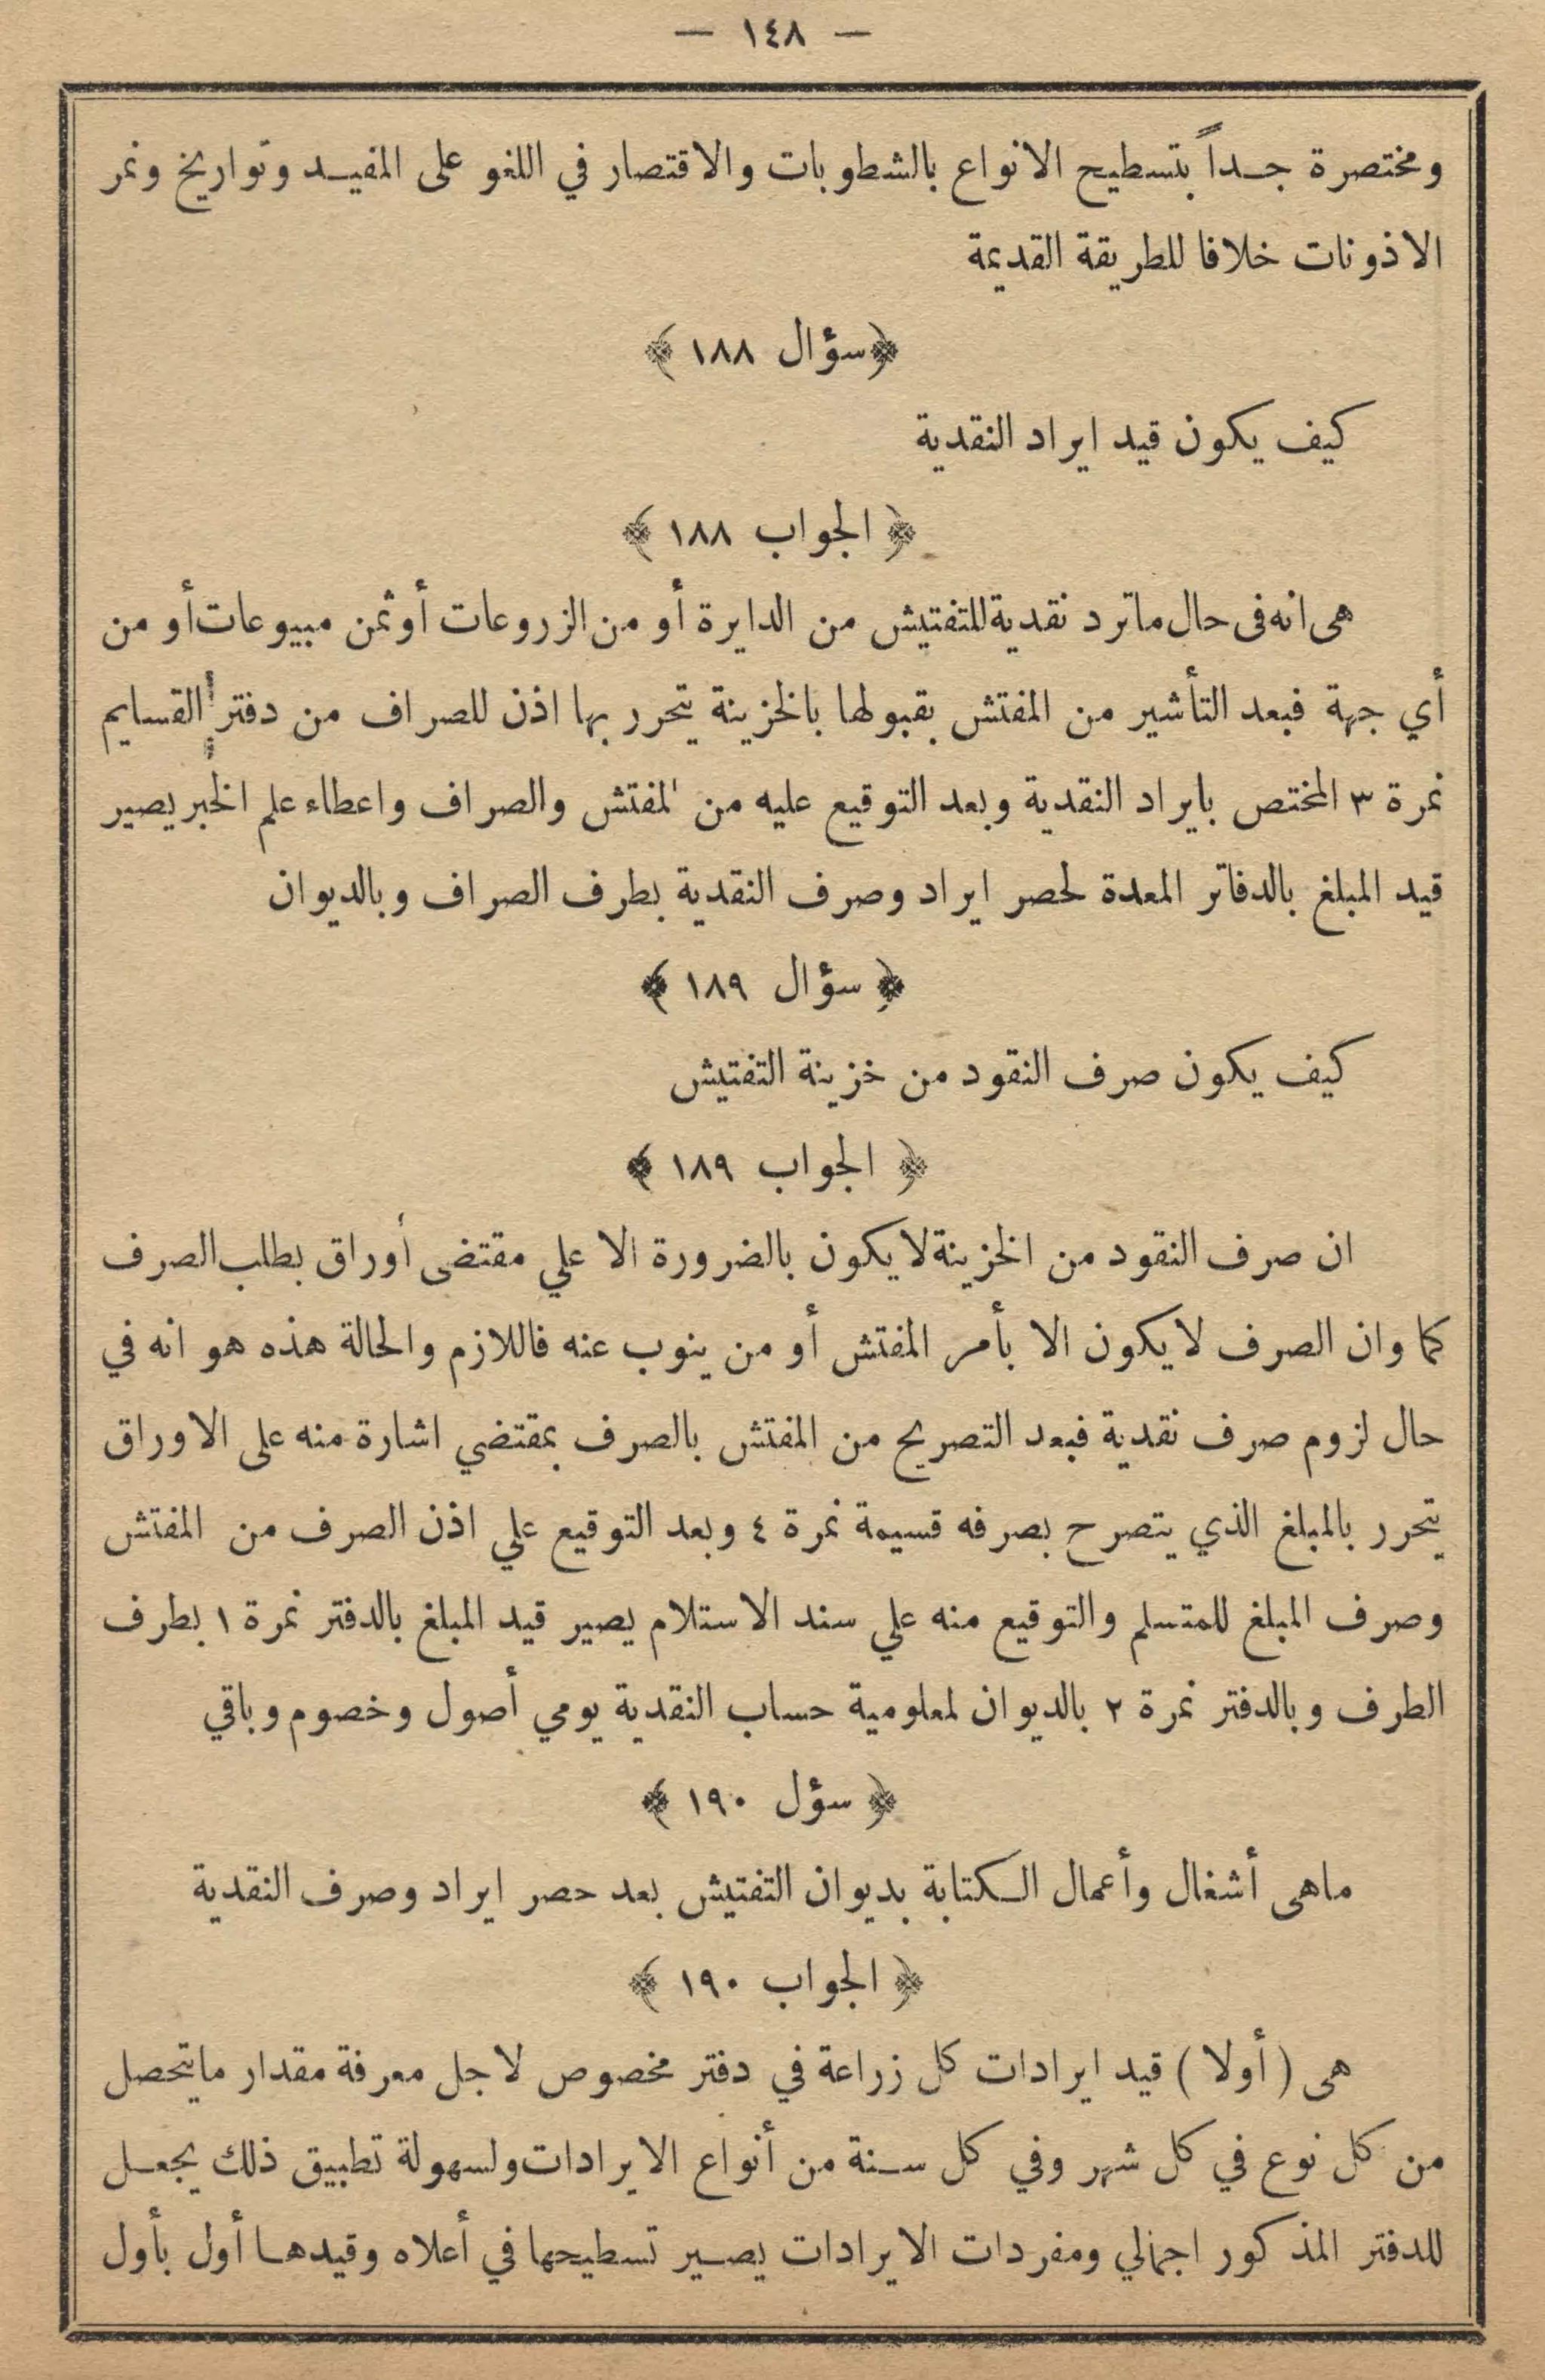 — ١٤٨ —
ومختصرة جداً بتسطيح الانواع بالشطوبات والاقتصار في اللغو على المفيد وتواريخ ونمر
الاذونات خلافا للطريقة القديمة
﴿ سؤال ١٨٨ ﴾
كيف يكون قيد ايراد النقدية
﴿ الجواب ١٨٨ ﴾
هى انه فى حال ماترد نقدية للتفتيش من الدايرة أو من الزروعات أو ثمن مبيوعات أو من
أي جهة فبعد التأشير من المفتش بقبولها بالخزينة يتحرر بها اذن للصراف من دفتر القسايم
نمرة ٣ المختص بايراد النقدية وبعد التوقيع عليه من المفتش والصراف واعطاء علم الخبر يصير
قيد المبلغ بالدفاتر المعدة لحصر ايراد وصرف النقدية بطرف الصراف وبالديوان
﴿ سؤال ١٨٩ ﴾
كيف يكون صرف النقود من خزينة التفتيش
﴿ الجواب ١٨٩ ﴾
ان صرف النقود من الخزينة لايكون بالضرورة الا علي مقتضى أوراق بطلب الصرف
كما وان الصرف لايكون الا بأمر المفتش أو من ينوب عنه فاللازم والحالة هذه هو انه في
حال لزوم صرف نقدية فبعد التصريح من المفتش بالصرف بمقتضي اشارة منه على الاوراق
يتحرر بالمبلغ الذي يتصرح بصرفه قسيمة نمرة ٤ وبعد التوقيع علي اذن الصرف من المفتش
وصرف المبلغ للمتسلم والتوقيع منه علي سند الاستلام يصير قيد المبلغ بالدفتر نمرة ١ بطرف
الطرف وبالدفتر نمرة ٢ بالديوان لمعلومية حساب النقدية يومي أصول وخصوم وباقي
﴿ سؤل ١٩٠ ﴾
ماهى أشغال وأعمال الكتابة بديوان التفتيش بعد حصر ايراد وصرف النقدية
﴿ الجواب ١٩٠ ﴾
هى ( أولا ) قيد ايرادات كل زراعة في دفتر مخصوص لاجل معرفة مقدار مايتحصل
من كل نوع في كل شهر وفي كل سنة من أنواع الايرادات ولسهولة تطبيق ذلك يجعل
للدفتر المذكور اجمالي ومفردات الايرادات يصير تسطيحها في أعلاه وقيدها أول بأول